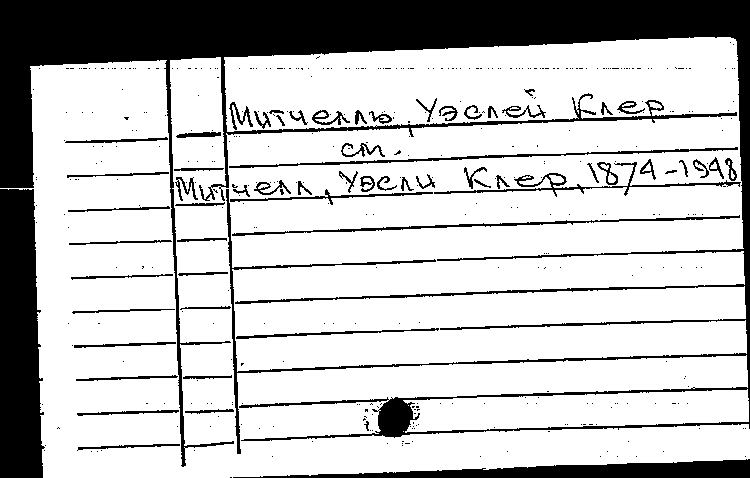 Митчелль, Уэслей Клер
см.
Митчелл, Уэсли Клер, 1874-1948